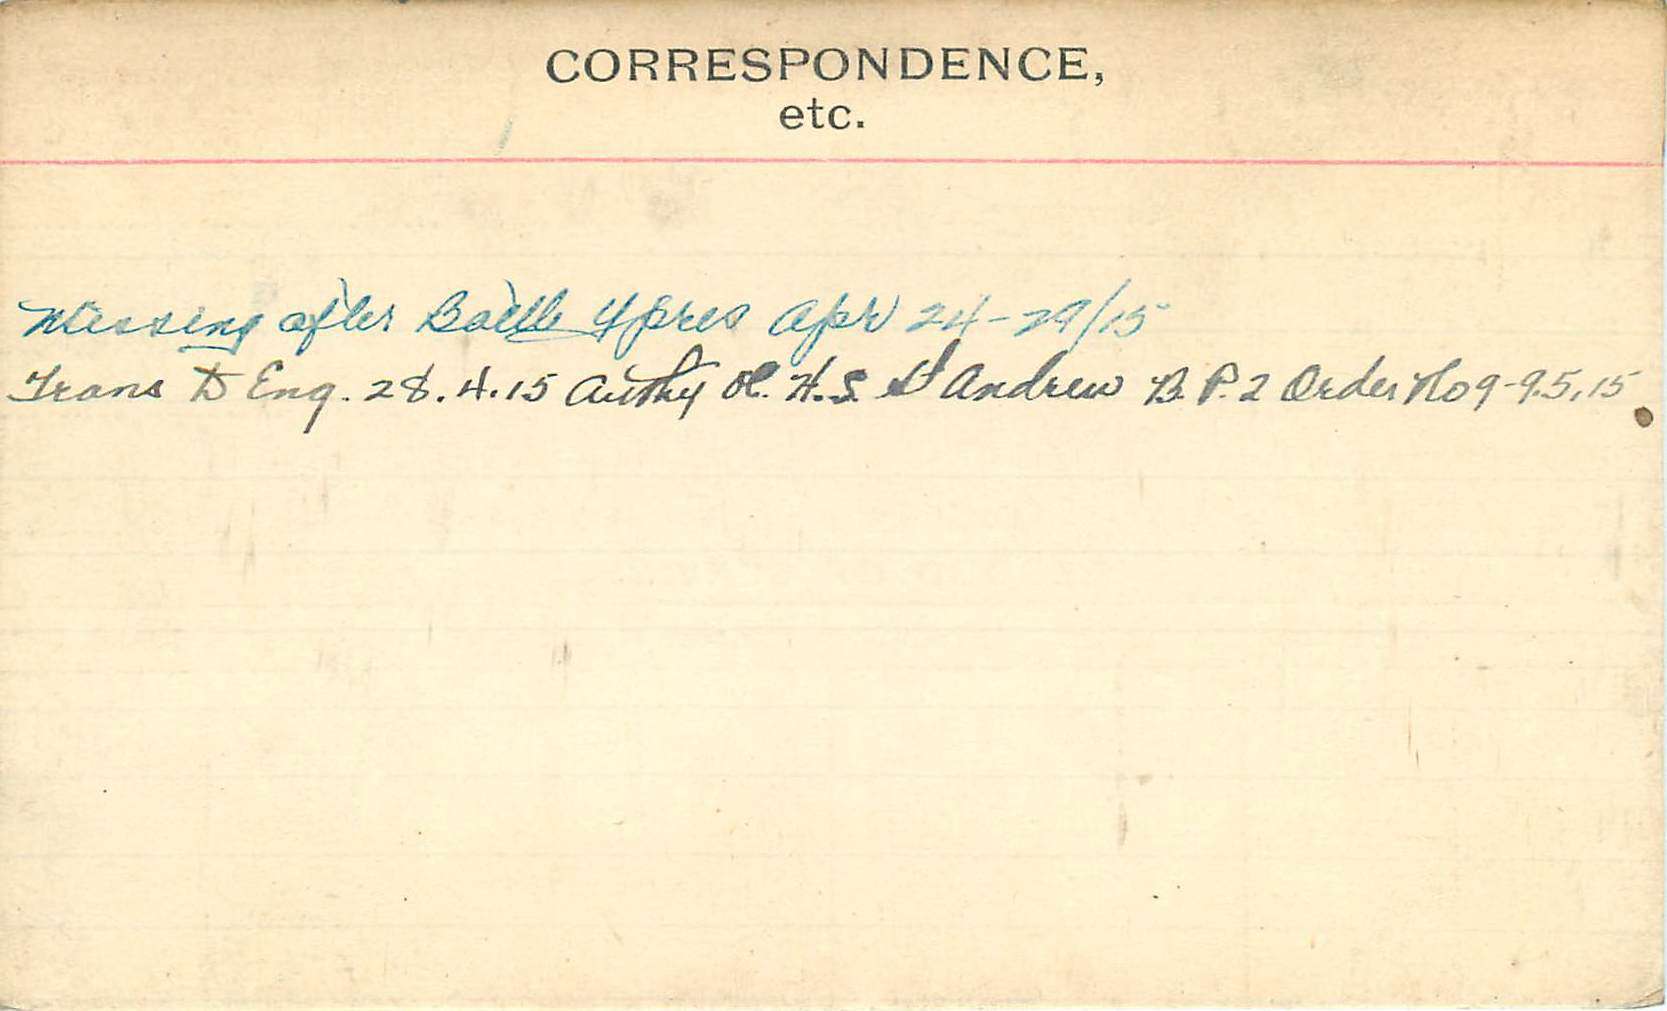 CORRESPONDENCE,
etc.
Missing after Battle Ypres Apr 24-29/15
Trans to Eng. 28.4.15 Authy H.S. St Andrew B.P.2 Order No 9-9.5.15